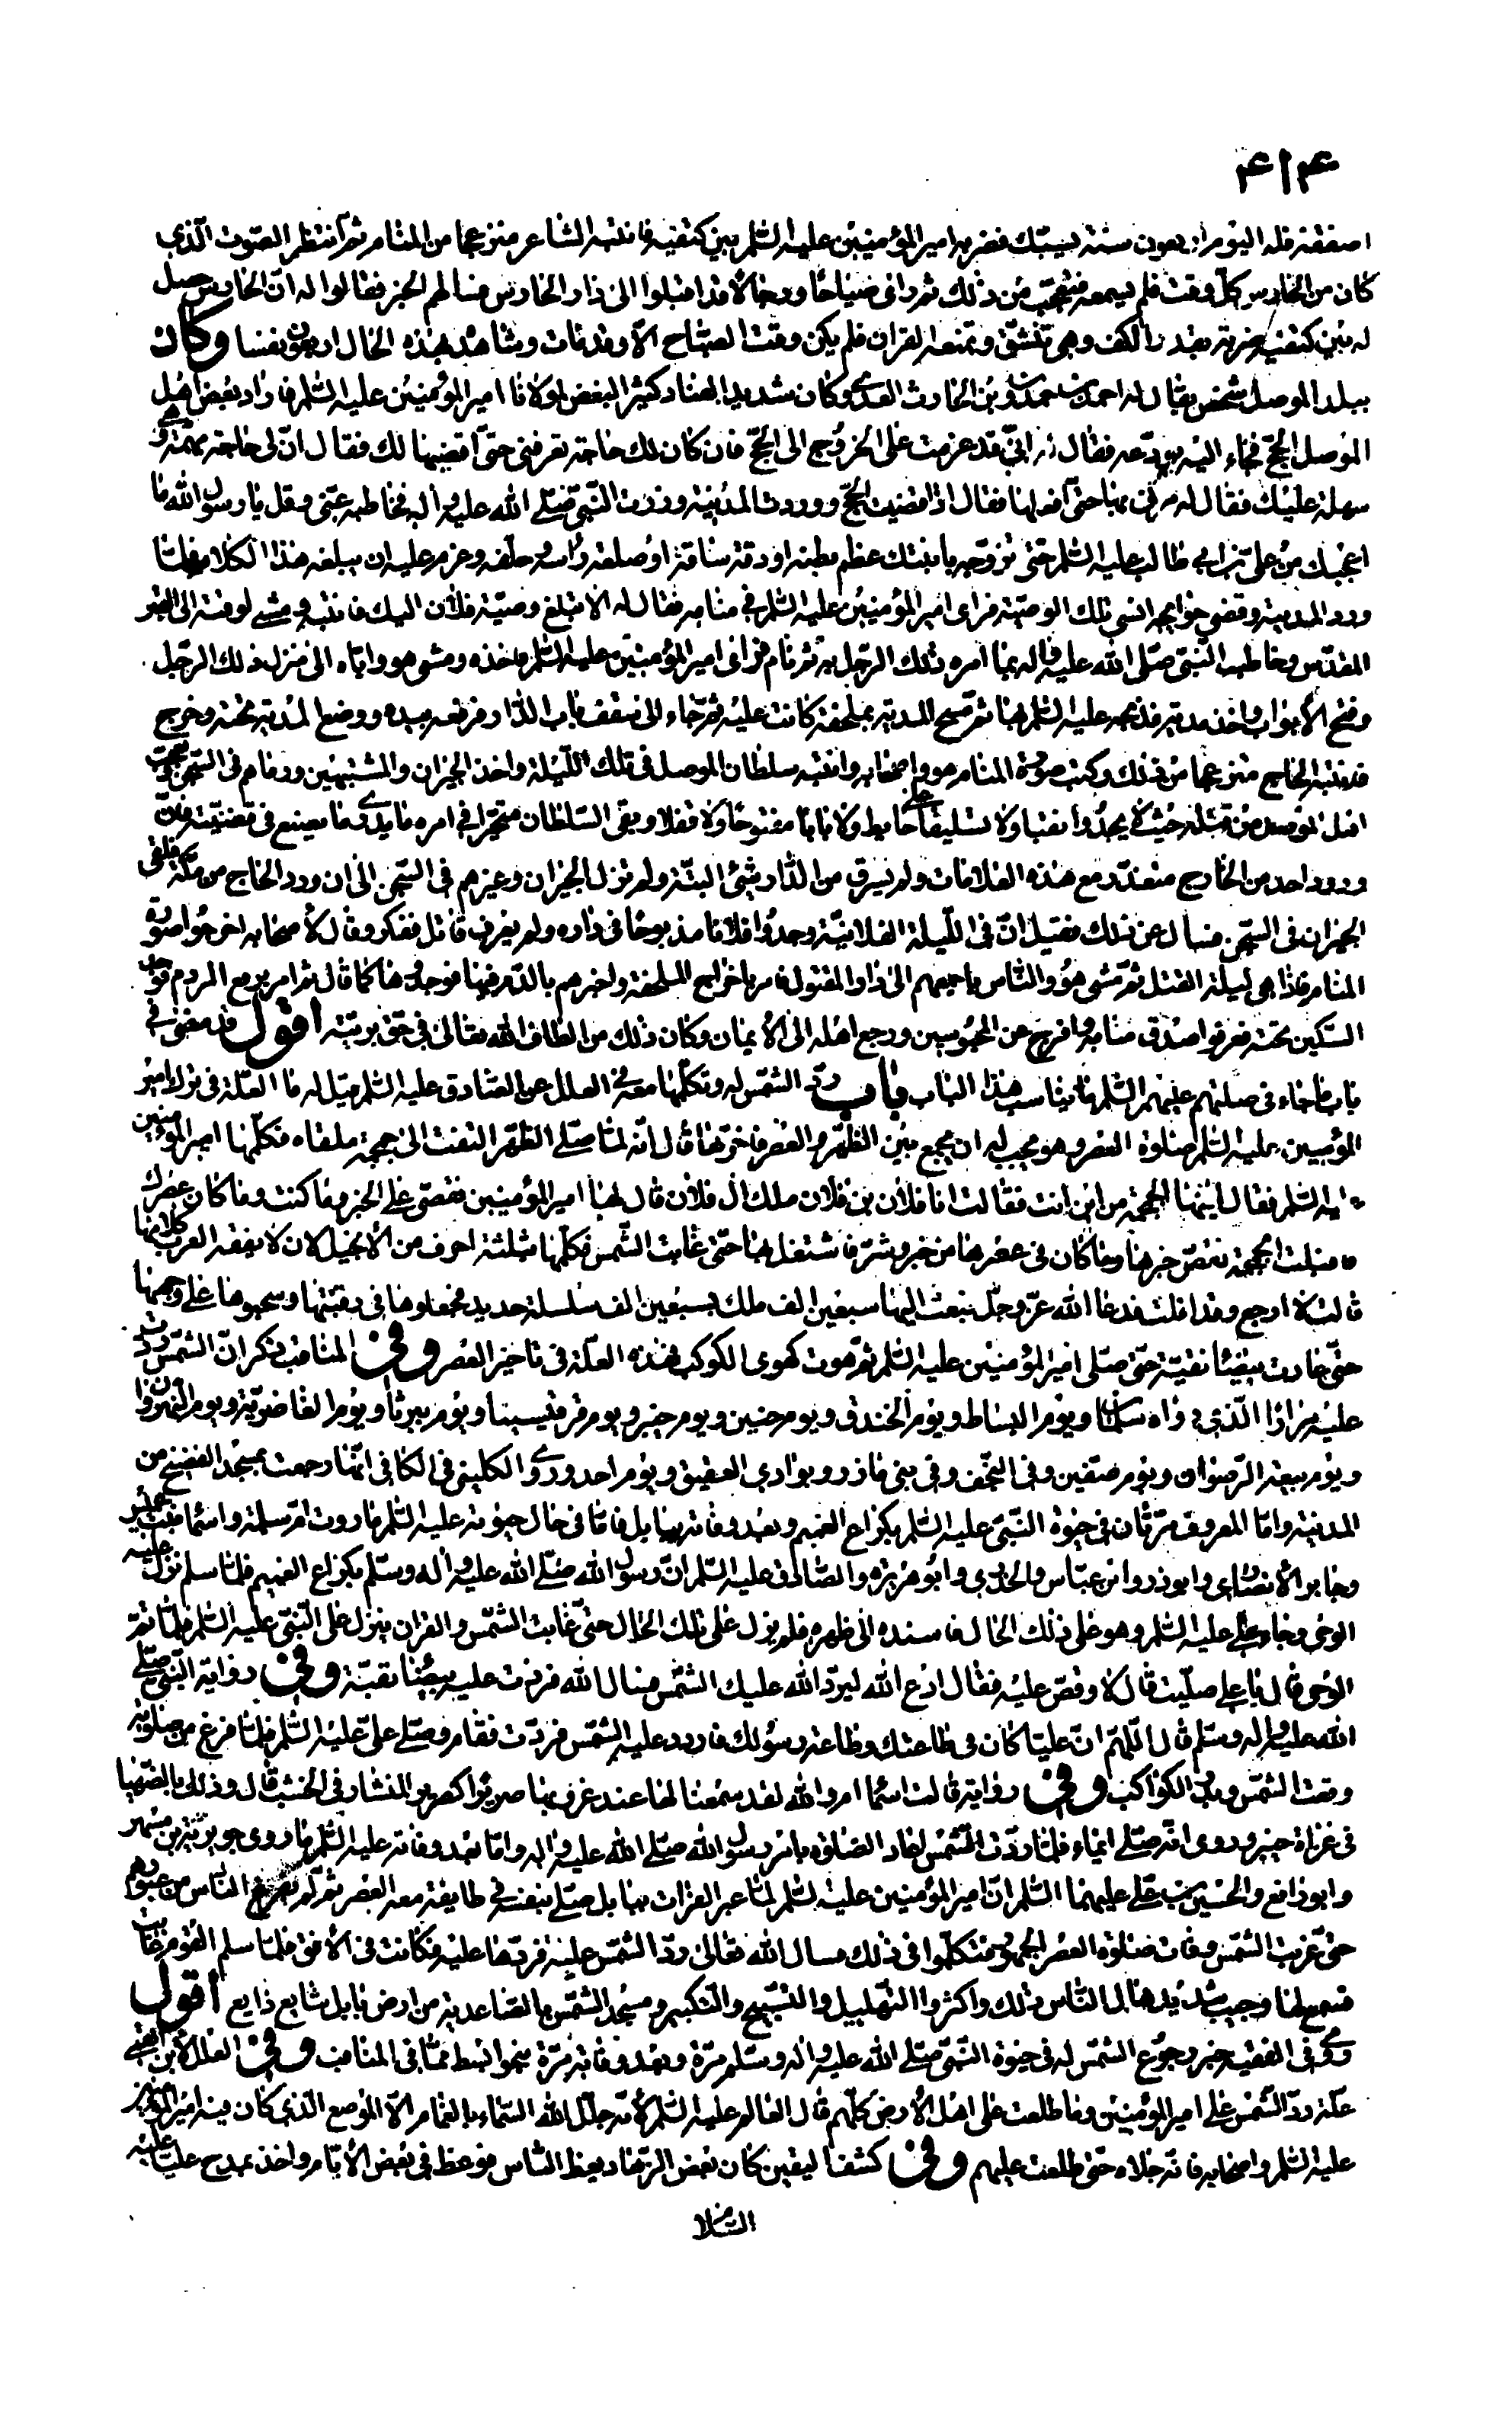 ۴۱۴
اصفقه فله اليوم اربعون سنة يسبّك فضربه امير المؤمنين عليه السّلم بين كتفيه فانتبه الشاعر منزعجا من المنام ثم انتظر الصّوت الّذى
كان من الحارس كلّ وقت فلم يسمعه فتعجّب من ذلك ثم رأى صياحا ورجالا قد اقبلوا الى دار الحارس فسالهم الخبر فقالوا له انّ الحارس حصل
له بين كتفيه ضربة بقدر الكف وهى تنشقّ وتمنعه القرار فلم يكن وقت الصباح الّا وقد مات وشاهده بهذه الحال اربعون نفسا وكان
ببلد الموصل شخص يقال له احمد بن حمدون بن الحارث العدوى وكان شديد العناد كثير البغض لمولانا امير المؤمنين عليه السّلم فاراد بعض اهل
الموصل الحجّ فجاء اليه يودّعه فقال له انّى قد عزمت على الخروج الى الحجّ فان كان لك حاجة تعرفنى حتّى اقضيها لك فقال انّ لى حاجة مهمّة و
سهلة عليك فقال له مرنى بها حتّى افعلها فقال اذا قضيت الحجّ ووردت المدينة وزرت النّبىّ صلّى الله عليه واله فخاطبه عنّى وقل يا رسول الله ما
اعجبك من علىّ بن ابى طالب عليه السّلم حتى تزوّجه بابنتك عظم بطنه او دقة ساقه او صلعة راسه وحلّفه وعزم عليه ان يبلغه هذا الكلام فلمّا
ورد المدينة وقضى حوايجه انسى تلك الوصيّة فراى امير المؤمنين عليه السّلم فى منامه فقال له الا تبلغ وصيّة فلان اليك فانتبه ومشى لوقته الى القبر
المقدّس وخاطب النّبىّ صلّى الله عليه واله بما امره ذلك الرجل به ثم نام فراى امير المؤمنين عليه السّلم فاخذه ومشى هو واياه الى منزل ذلك الرجل
وفتح الأبواب واخذ مدية فذبحه عليه السّلم بها ثم مسح المدية بملحفة كانت عليه ثم جاء الى سقف باب الدّار فرفعه بيده ووضع المدية تحته وخرج
فانتبه الحاج منزعجا من ذلك وكتب صورة المنام هو واصحابه وانتبه سلطان الموصل فى تلك اللّيلة واخذ الجيران والمشتبهين ورماهم فى السّجن وتعجب
اهل الموصل من قتله حيث لم يجدوا نقبا ولا تسليقا على حايط ولا بابا مفتوحا ولا قفلا وبقى السّلطان متحيّرا فى امره ما يدرى ما يصنع فى قضيّته فانّ
ورود احد من الخارج متعذّر مع هذه العلامات ولم يسرق من الدّار شئ البتة ولم تزل الجيران وغيرهم فى السّجن الى ان ورد الحاج من مكّة فلقى
الجيران فى السّجن فسال عن ذلك فقيل انّ فى اللّيلة الفلانيّة وجدوا فلانا مذبوحا فى داره ولم يعرف قاتله ففكّر وقال لأصحابه اخرجوا صورة
المنام فاذا هى ليلة القتل ثم مشى هو والنّاس باجمعهم الى دار المقتول فامر باخراج الملحفة واخبرهم بالدّم فيها فوجدوها كما قال ثم امر برفع المردم فوجد
السّكين تحته فعرفوا صدق منامه وافرج عن المحبوسين ورجع اهله الى الأيمان وكان ذلك من الطاف الله تعالى فى حقّ بريّته أقول قد مضى فى
باب ما جاء فى صلتهم عليهم السّلم ما يناسب هذا الباب باب ردّ الشمس له وتكلّمها معه فى العلل عن الصّادق عليه السّلم قيل له ما العلّة فى ترك امير
المؤمنين عليه السّلم صلوة العصر وهو يحب له ان يجمع بين الظّهر والعصر فاخّرها قال انّه لمّا صلّى الظّهر التفت الى جمجمة ملقاه فكلّمها امير المؤمنين
عليه السّلم فقال ايّتها الجمجمة من اين انت فقالت انا فلان بن فلان ملك ال فلان قال لها امير المؤمنين فقصّى علىّ الخبر وما كنت وما كان عصرك
فاقبلت الجمجمة تقصّ خبرها وما كان فى عصرها من خير وشرّ فاشتغل بها حتّى غابت الشّمس فكلّمها بثلثة احرف من الأنجيل لان لا يفقه العرب كلامها
قالت لا ارجع وقد افلت فدعا الله عزّ وجلّ فبعث اليها سبعين الف ملك بسبعين الف سلسلة حديد فجعلوها فى رقبتها وسحبوها على وجهها
حتّى عادت بيضاء نقيّة حتى صلّى امير المؤمنين عليه السّلم ثم هوت كهوى الكوكب فهذه العلّة فى تاخير العصر وفى المناقب ذكر انّ الشّمس ردّت
عليه مرارا الّذى رواه سلمان ويوم البساط ويوم الخندق ويوم حنين ويوم خيبر ويوم قرقيسيا ويوم براثا ويوم الغاضريّة ويوم النّهروان
ويوم بيعة الرّضوان ويوم صفّين وفى النّجف وفى بنى مازر وبوادى العقيق ويوم احد وروى الكلينى فى الكافى انّها رجعت بمسجد الفضيخ من
المدينة وامّا المعروف مرّتان فى حيوة النّبىّ عليه السّلم بكراع الغميم وبعد وفاته ببابل فامّا فى حال حيوته عليه السّلم ما روت امّ سلمة واسما بنت عميس
وجابر الأنصارى وابوذر وابن عبّاس والخدرى وابو هريرة والصّادق عليه السّلم انّ رسول الله صلّى الله عليه واله وسلّم بكراع الغميم فلمّا سلم نزل عليه
الوحى وجاء علىّ عليه السّلم وهو على ذلك الحال فاسنده الى ظهره فلم يزل على تلك الحال حتّى غابت الشّمس والقران ينزل على النّبىّ عليه السّلم فلمّا تمّ
الوحى قال يا على صلّيت قال لا وقصّ عليه فقال ادع الله ليردّ الله عليك الشّمس فسال الله فردّت عليه بيضاء نقيّة وفى رواية النّبىّ صلّى
الله عليه واله وسلّم قال اللّهم انّ عليّا كان فى طاعتك وطاعة رسولك فاردد عليه الشّمس فردّت فقام وصلّى علىّ عليه السّلم فلمّا فرغ من صلوته
وقعت الشّمس وبدر الكواكب وفى رواية قالت اسما ام والله لقد سمعنا لها عند غروبها صريرا كصرير المنشار فى الخشب قال وذلك بالصّهبا
فى غزاة خيبر وروى انّه صلّى ايماء فلمّا ردّت الشّمس اعاد الصّلوة بامر رسول الله صلّى الله عليه واله وامّا بعد وفاته عليه السّلم ما روى جويرية بن مسهر
وابو رافع والحسين بن علىّ عليهما السّلم انّ امير المؤمنين عليه السّلم لمّا عبر الفرات ببابل صلّى بنفسه فى طايفة معه العصر ثم لم يفرغ النّاس من عبورهم
حتى غربت الشّمس وفات صلوة العصر الجمهور فتكلّموا فى ذلك فسال الله تعالى ردّ الشّمس عليه فردّها عليه فكانت فى الأفق فلمّا سلم القوم غابت
فسمع لها وجيب شديد هال النّاس ذلك واكثروا التهليل والتسبيح والتّكبير ومسجد الشّمس بالصّاعدية من ارض بابل شايع ذايع أقول
وروى فى الفقيه خبر رجوع الشمس له فى حيوة النّبىّ صلّى الله عليه واله وسلّم مرّة وبعد وفاته مرّة بنحو ابسط ممّا فى المناقب وفى العلل
علّة ردّ الشّمس على امير المؤمنين وما طلعت على اهل الأرض كلّهم قال العالم عليه السّلم لأنّه جلّل الله السّماء بالغمام الّا الموضع الّذى كان فيه امير المؤمنين
عليه السّلم واصحابه فانّه جلاه حتى طلعت عليهم وفى كشف اليقين كان بعض الزّهاد يعظ النّاس فوعظ فى بعض الأيّام واخذ يمدح عليّا عليه
السّلام